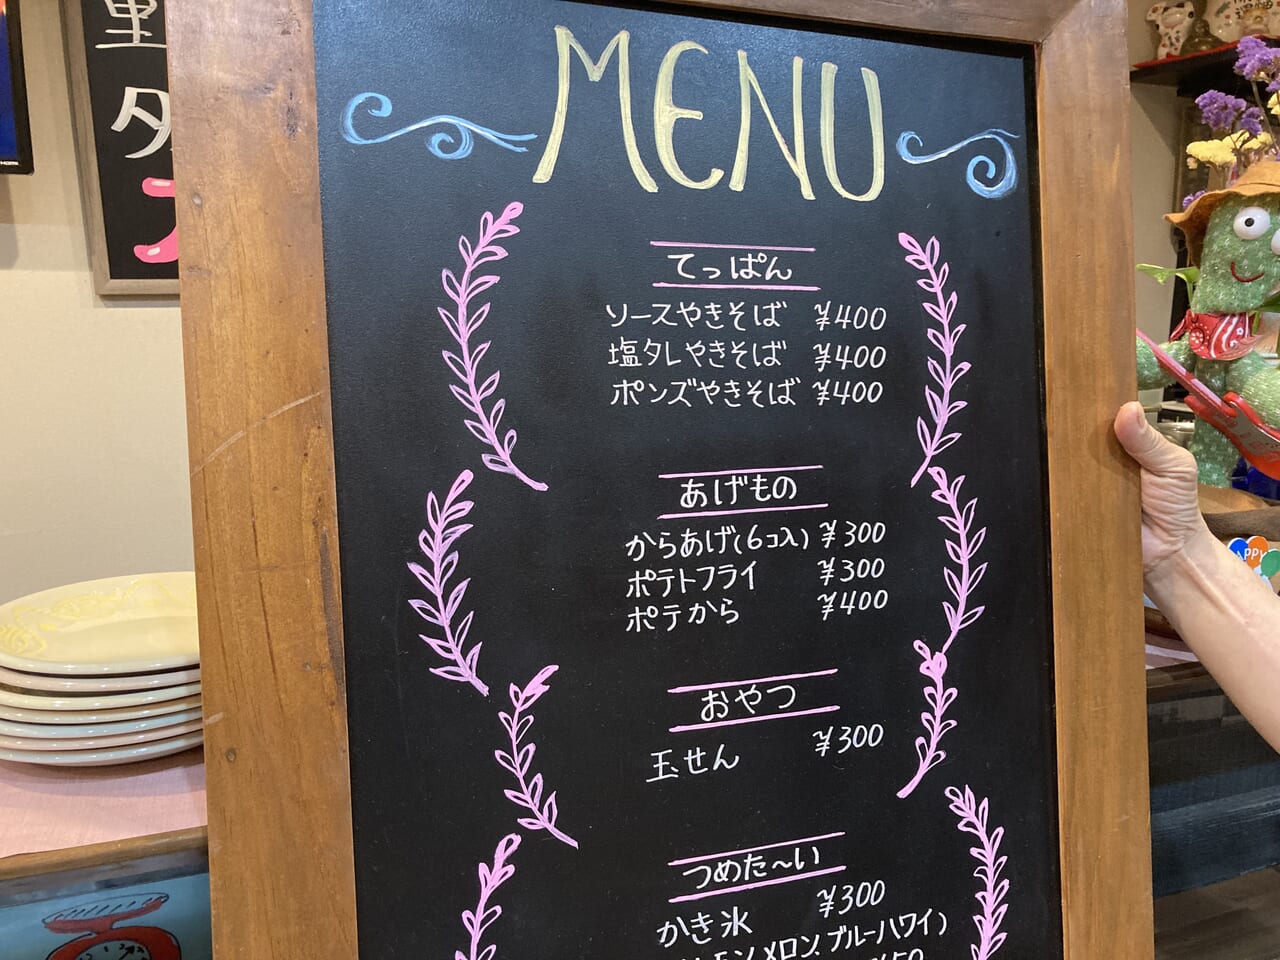 MENU
てっぱん
ソースやきそば ¥400
塩タレやきそば ¥400
ポンズやきそば ¥400
あげもの
からあげ(6コ入) ¥300
ポテトフライ ¥300
ポテから ¥400
おやつ
玉せん ¥300
つめた〜い
かき氷 ¥300
メロン、ブルーハワイ)